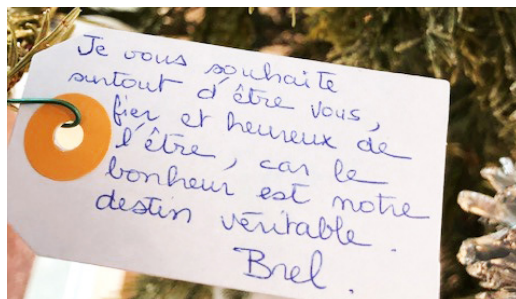 Je vous souhaite
surtout d'être vous,
fier et heureux de
l'être, car le
bonheur est notre
destin véritable.
Brel.